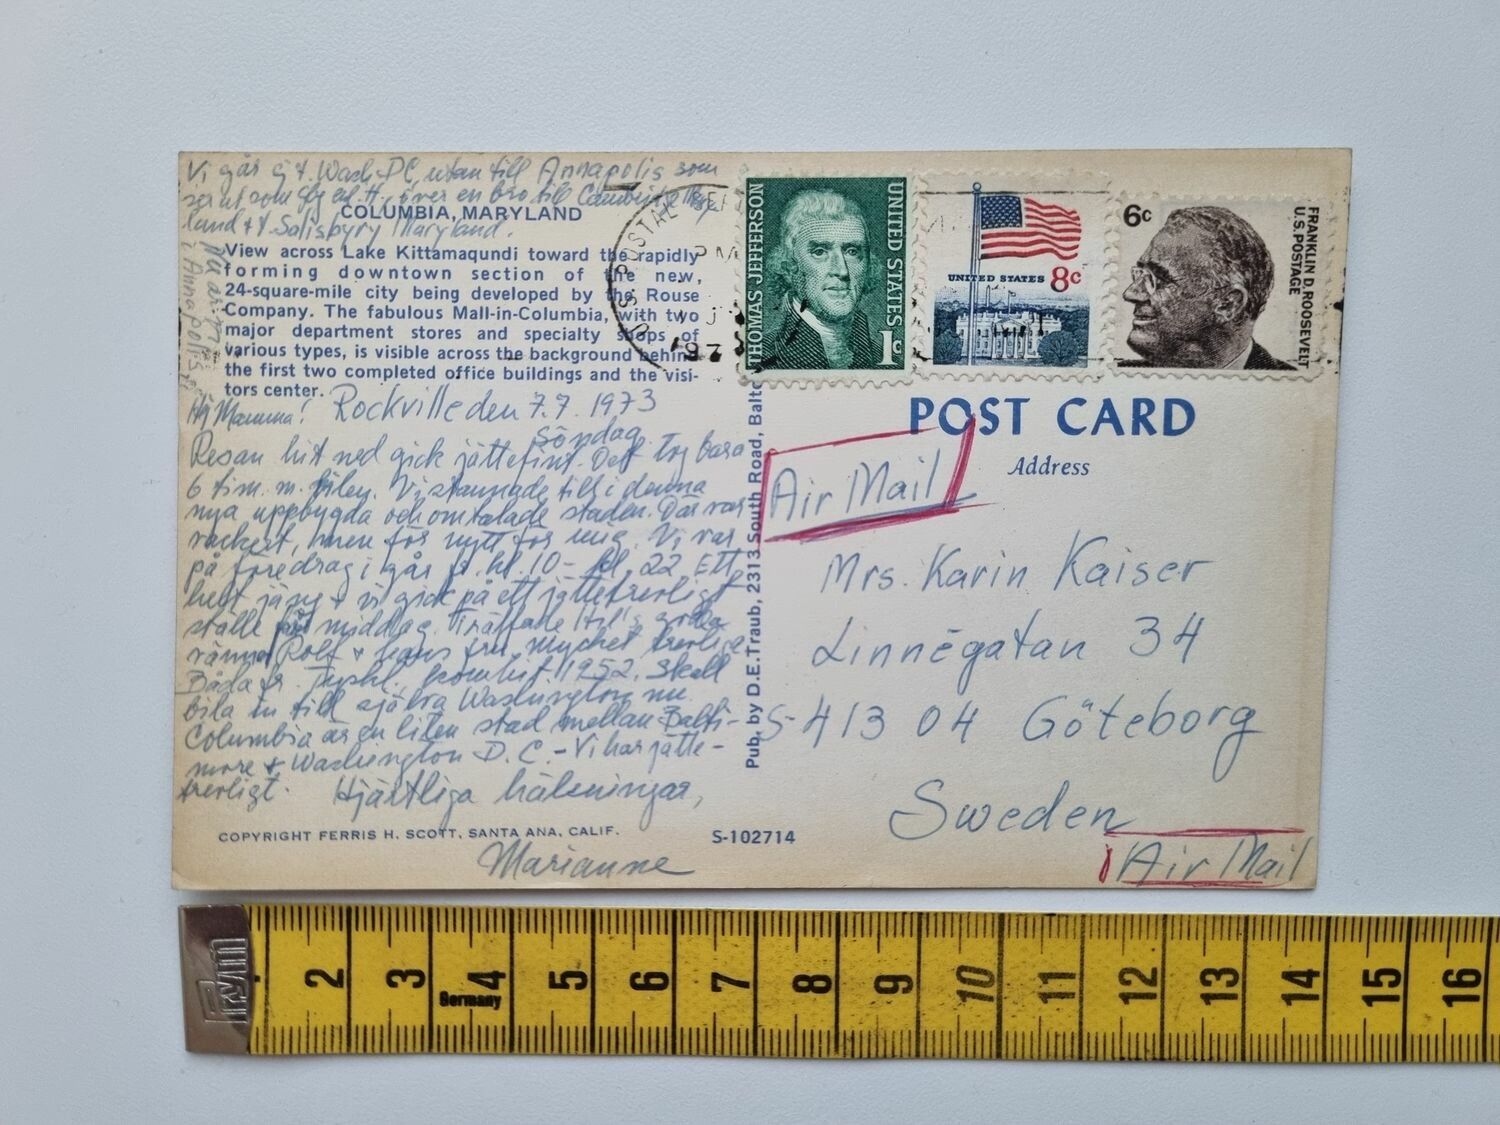 Vi går ej t. Wash. DC, utan till Annapolis som
över en bro till Cambridge Mary-
land & t. Salisbury Maryland.
COLUMBIA, MARYLAND
View across Lake Kittamaqundi toward the rapidly
forming downtown section of the new,
24-square-mile city being developed by the Rouse
Company. The fabulous Mall-in-Columbia, with two
major department stores and specialty shops of
various types, is visible across the background behind
the first two completed office buildings and the visi-
tors center.
Nu är vi
i Annapolis
Hej Mamma! Rockville den 7.7. 1973
Söndag
Resan hit ned gick jättefint. Det tog bara
6 tim. m. bilen. Vi stannade till i denna
nya uppbygda och omtalade staden. Där var
vackert, men för nytt för mig. Vi var
på föredrag i går fr. kl. 10 - kl. 22 Ett
helt gäng & vi gick på ett jättetrevligt
ställe på middag. Träffade goda
vänner Rolf & hans fru. mycket trevliga
Båda är 1952. Skall
bila in till själva Washington nu
Columbia är en liten stad mellan Balti-
more & Washington D.C. - Vi har jätte-
trevligt. Hjärtliga hälsningar,
Marianne
COPYRIGHT FERRIS H. SCOTT, SANTA ANA, CALIF.
S-102714
Pub. by D.E. Traub, 2313 South Road, Balto
U.S. POSTAL SE
PM
197
THOMAS JEFFERSON
UNITED STATES
1c
UNITED STATES 8c
6c
FRANKLIN D. ROOSEVELT
U.S. POSTAGE
POST CARD
Address
Air Mail
Mrs. Karin Kaiser
Linnégatan 34
S-413 04 Göteborg
Sweden
Air Mail
2 3 4 5 6 7 8 9 10 11 12 13 14 15 16
Germany